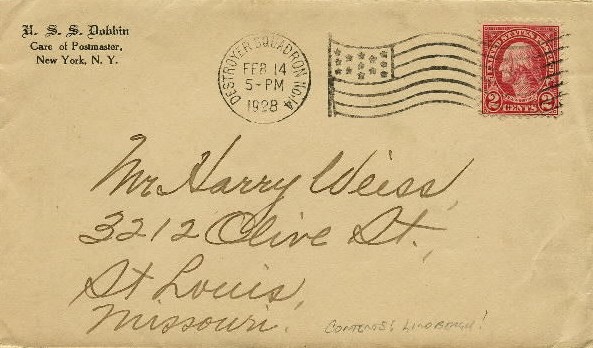 U. S. S. Dobbin
Care of Postmaster,
New York, N. Y.
DESTROYER SQUADRON NO. 14
FEB 14
5-PM
1928
UNITED STATES POSTAGE
2 CENTS 2
Mr Harry Weiss,
3212 Olive St.,
St Louis,
Missouri.
CONTENTS: LINDBERGH!